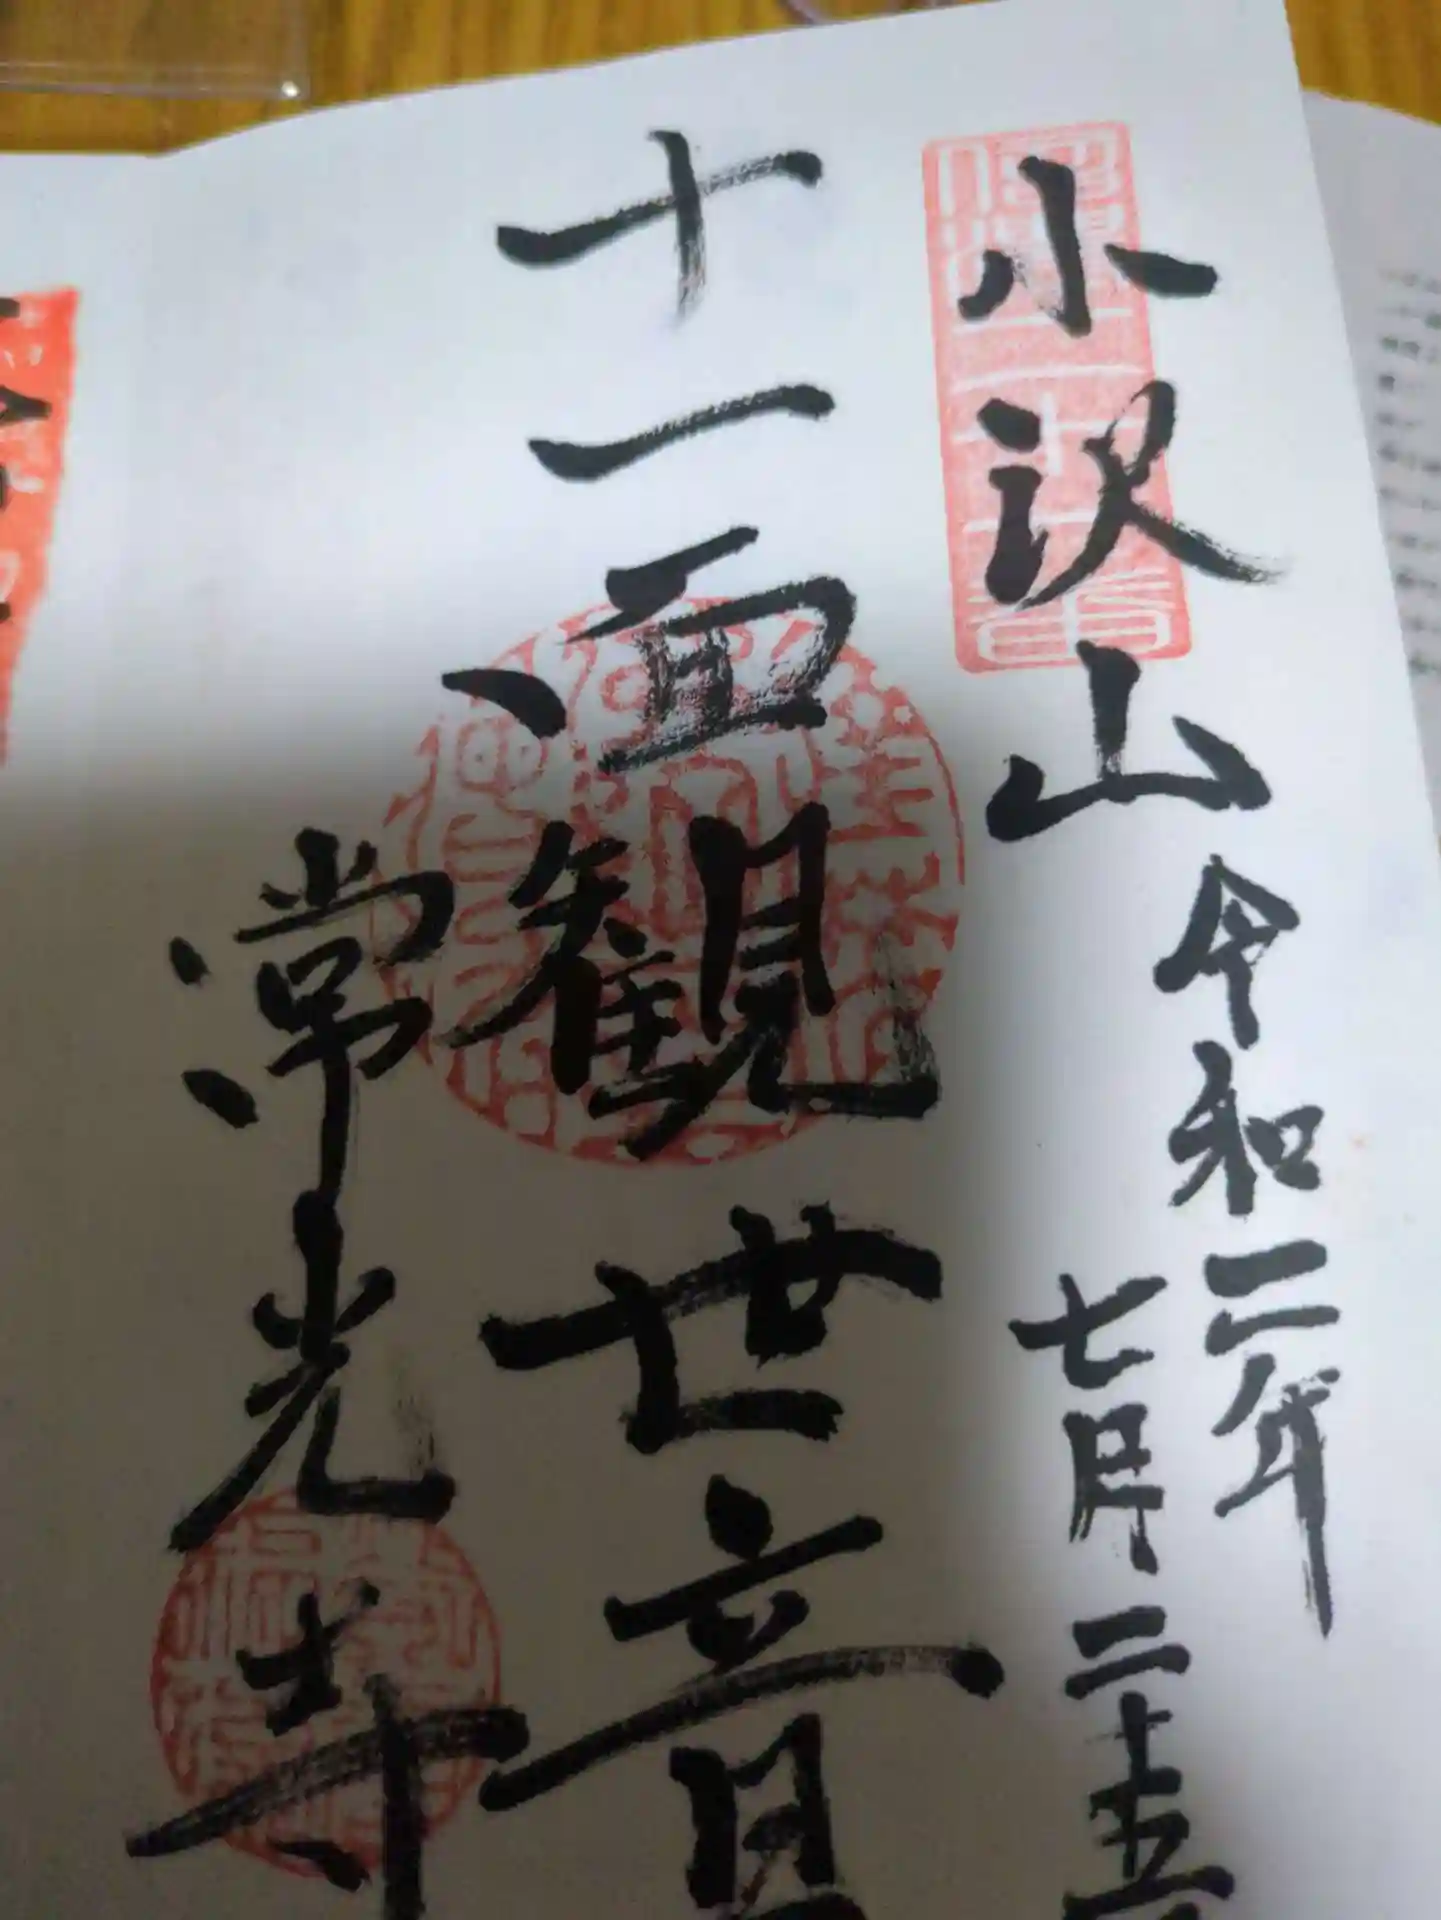 小沢山
令和二年
七月二十五
十一面観世音
常光寺